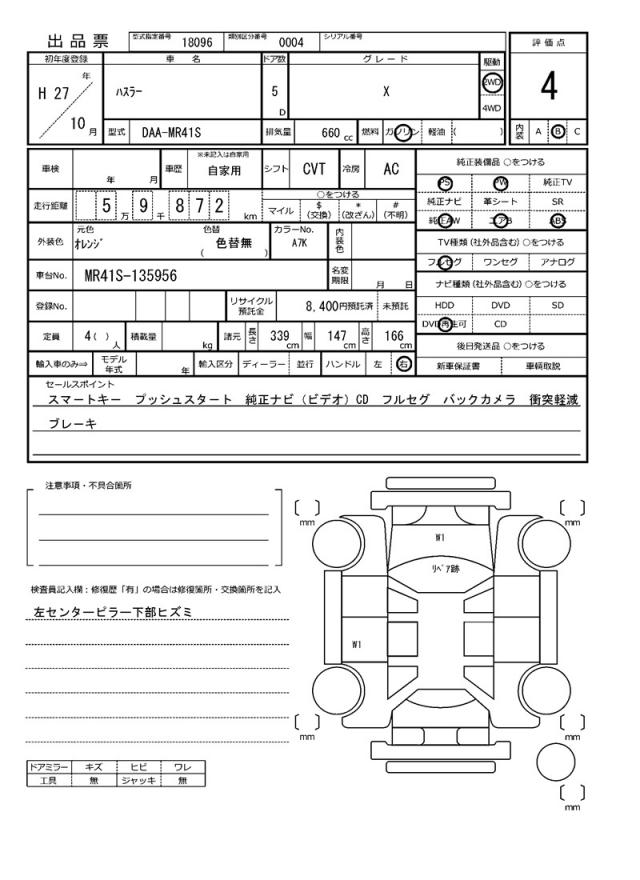 出品票 型式指定番号 18096 類別区分番号 0004 シリアル番号
評価点
4
内装 A B C
初年度登録 車名 ドア数 グレード 駆動
H 27 年 10 月 ハスラー 5 D X 2WD 4WD
型式 DAA-MR41S 排気量 660 cc 燃料 ガソリン 軽油 ( )
車検 年 月 車歴 ※未記入は自家用 自家用 シフト CVT 冷房 AC
走行距離 5 万 9 千 8 7 2 km ○をつける マイル $ (交換) * (改ざん) # (不明)
外装色 元色 オレンジ 色替 ( 色替無 ) カラーNo. A7K 内装色
車台No. MR41S-135956 名変期限 月 日
登録No. リサイクル預託金 8,400円預託済 未預託
定員 4 ( ) 人 積載量 kg 諸元 長さ 339 cm 幅 147 cm 高さ 166 cm
輸入車のみ⇒ モデル年式 年 輸入区分 ディーラー 並行 ハンドル 左 右
純正装備品 ○をつける
PS PW 純正TV
純正ナビ 革シート SR
純正AW エアB ABS
TV種類 (社外品含む) ○をつける
フルセグ ワンセグ アナログ
ナビ種類 (社外品含む) ○をつける
HDD DVD SD
DVD再生可 CD
後日発送品 ○をつける
新車保証書 車輌取説
セールスポイント
スマートキー プッシュスタート 純正ナビ（ビデオ）CD フルセグ バックカメラ 衝突軽減
ブレーキ
注意事項・不具合箇所
検査員記入欄：修復歴「有」の場合は修復箇所・交換箇所を記入
左センターピラー下部ヒズミ
ドアミラー キズ ヒビ ワレ
工具 無 ジャッキ 無
mm
mm
W1
リペア跡
W1
mm
mm
mm